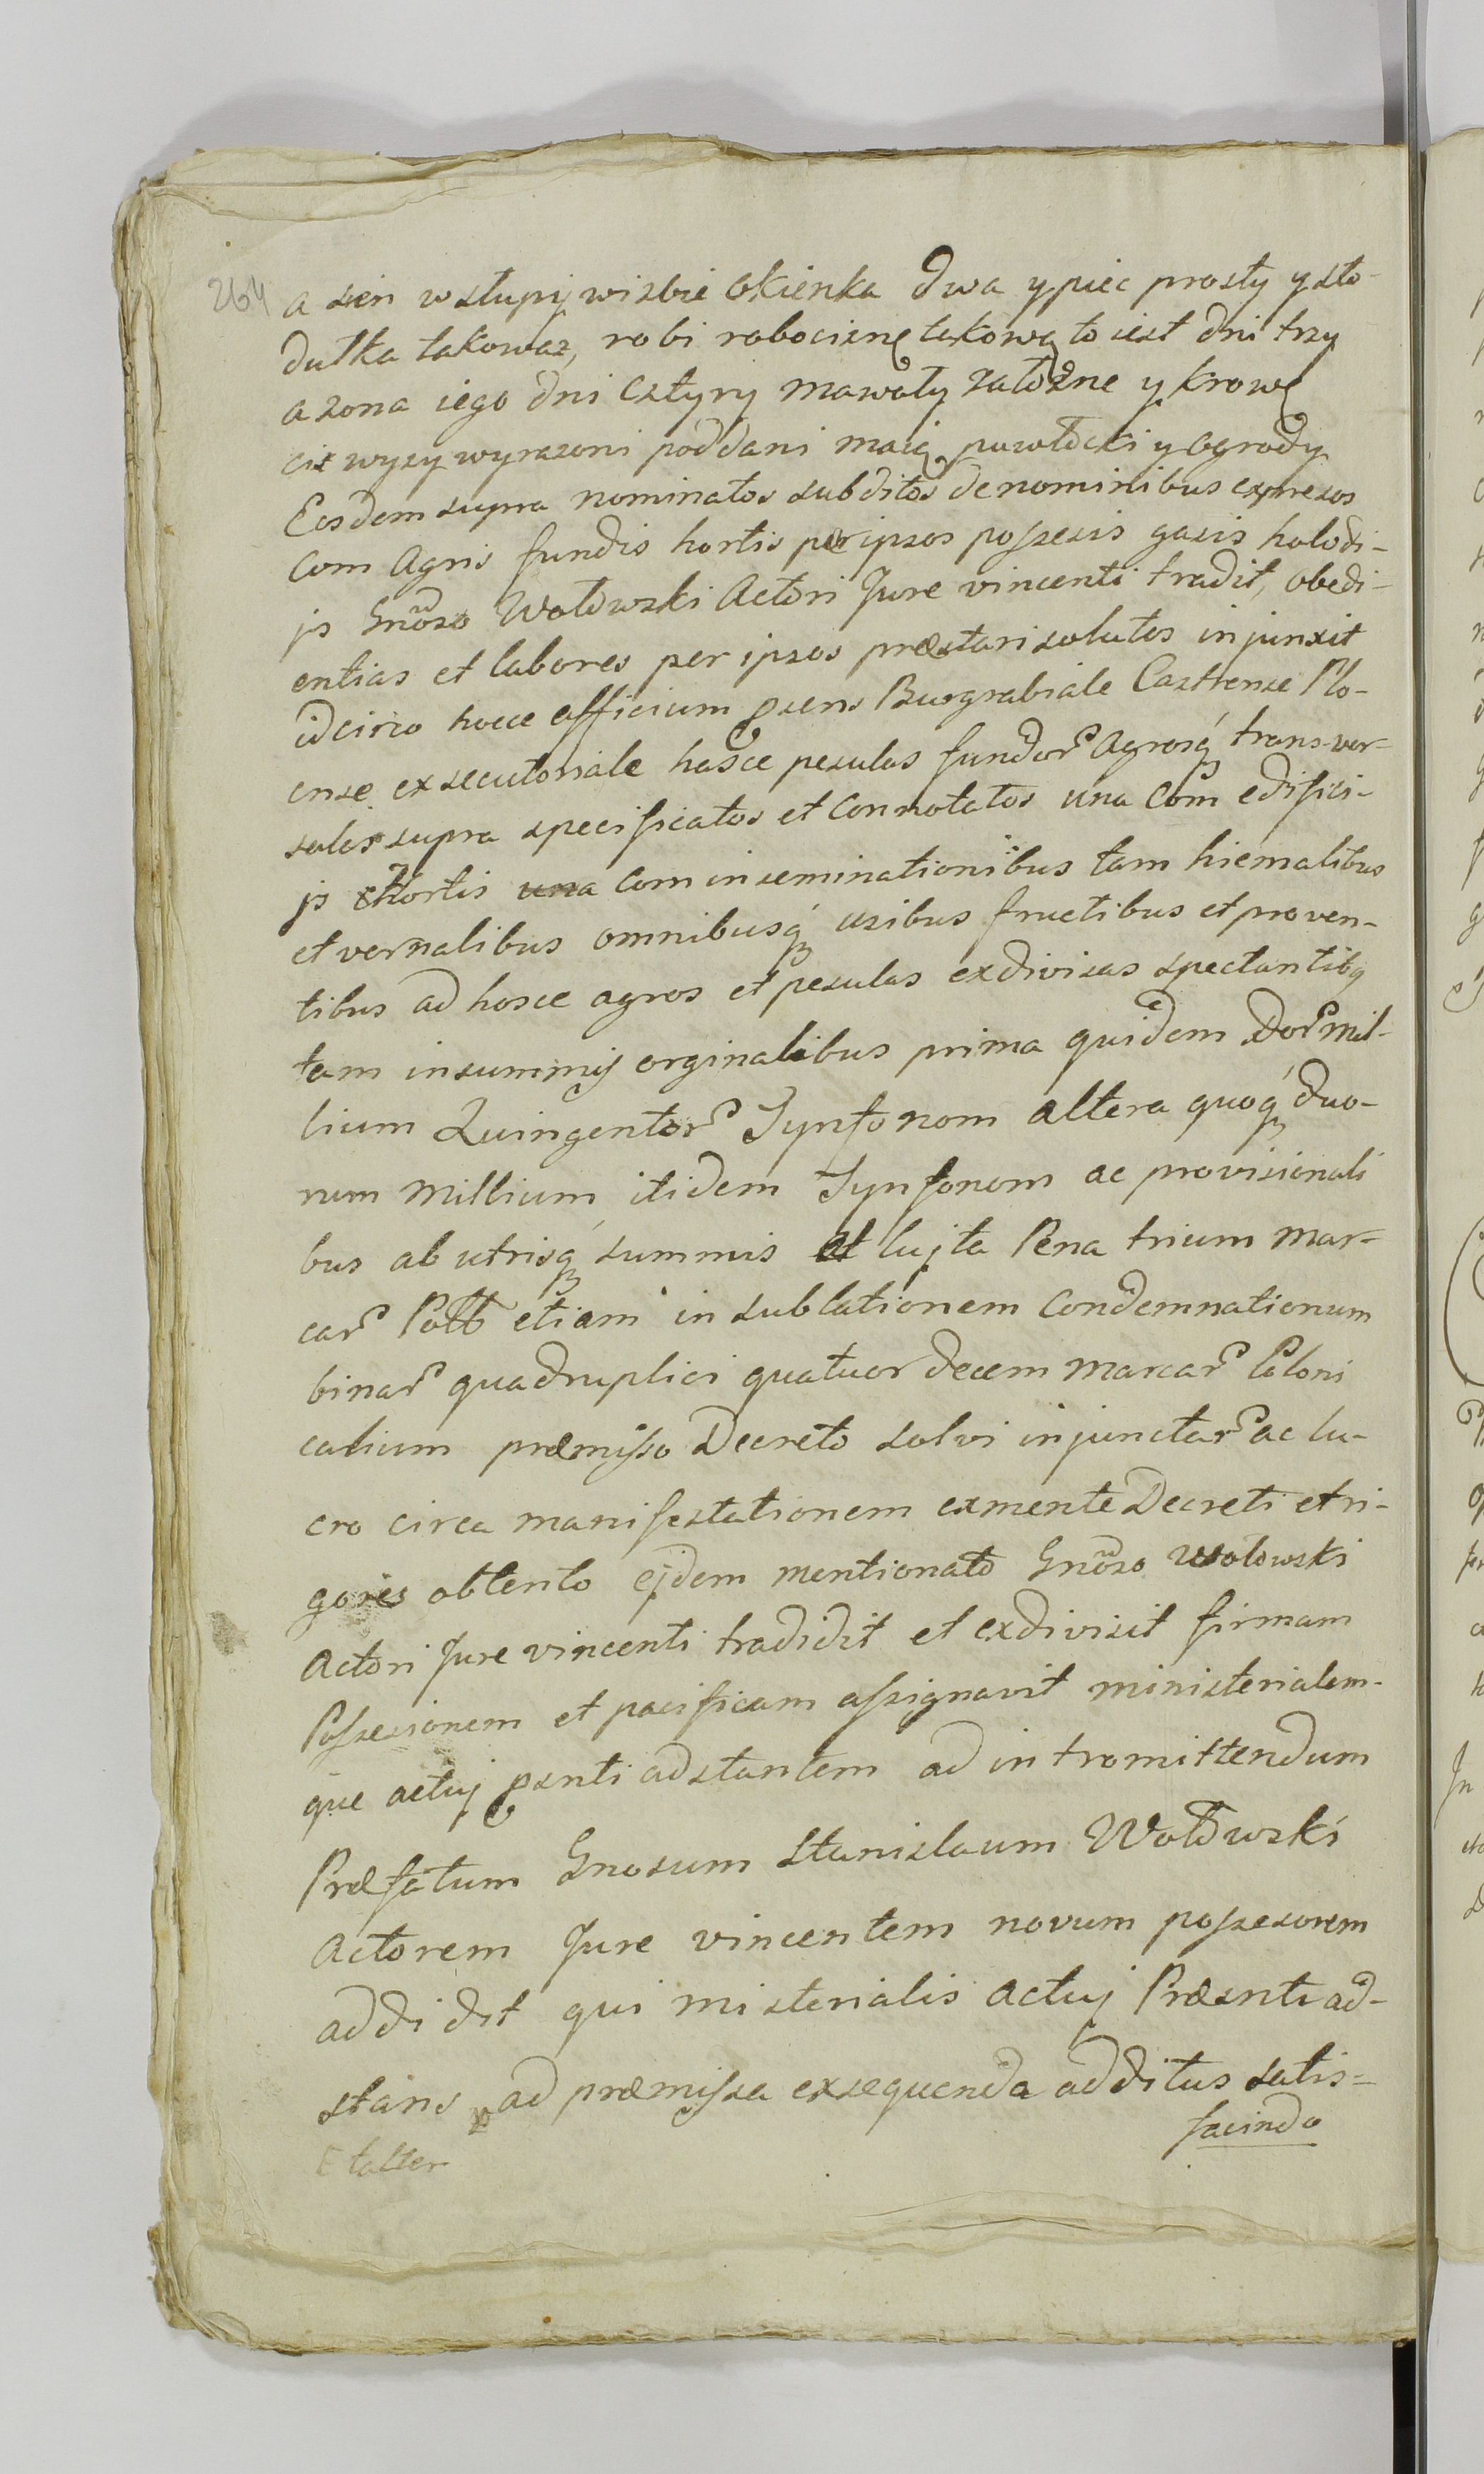 264
a sien wstupy w izbie okienka dwa y piec prosty y sto-
dułka takowaz, robi robociznę takową to iest dni trzy
a zona iego dni cztyry ma woły załozne y krowę
ciz wyzy wyrazoni poddani maią puwłocki y ogrody
Eosdem supra nominatos subditos de nominibus expresos
com Agris fundis hortis per ipsos possesis gazis holodi-
js Gnoso Wołowski Actori Jure vincenti tradit, obedi-
entias et labores per ipsos præstari solutos injunxit
idcirco hocce officium psens Burgrabiale Castrense Plo-
cense exsecutoriale hasce pesulas fundor Agrosq transver-
sales supra specificatos et connotatos una com edifici-
js et Hortis una com inseminationibus tam hiemalibus
et vernalibus omnibusq usibus fructibus et proven-
tibus ad hosce agros et pesulas exdivisas spectantibq
tam in summij orginalibus prima quidem Dor mil-
lium Quingentor Tynfonom altera quoq duo-
rum millium itidem Tynfonom ac provisionali
bus ab utrisq summis et lujta Pena trium mar-
car Poll etiam in sublationem Condemnationum
binar quadruplici quatuor decem marcar Poloni
calium præmisso Decreto solvi injunctar ac lu-
cro circa manifestationem ex mente Decreti et ri-
goris obtento ejdem mentionato Gnoso Wołowski
Actori Jure vincenti tradidit et exdivisit firmam
Possesionem et pacificam assignavit ministerialem-
que actuj psnti adstantem ad intromittendum
Præfatum Gnosum Stanislaum Wołowski
Actorem Jure vincentem novum possesorem
addidit qui misterialis actuj Præsnti ad-
stans ad præmissa exsequenda additus satis-
facindo